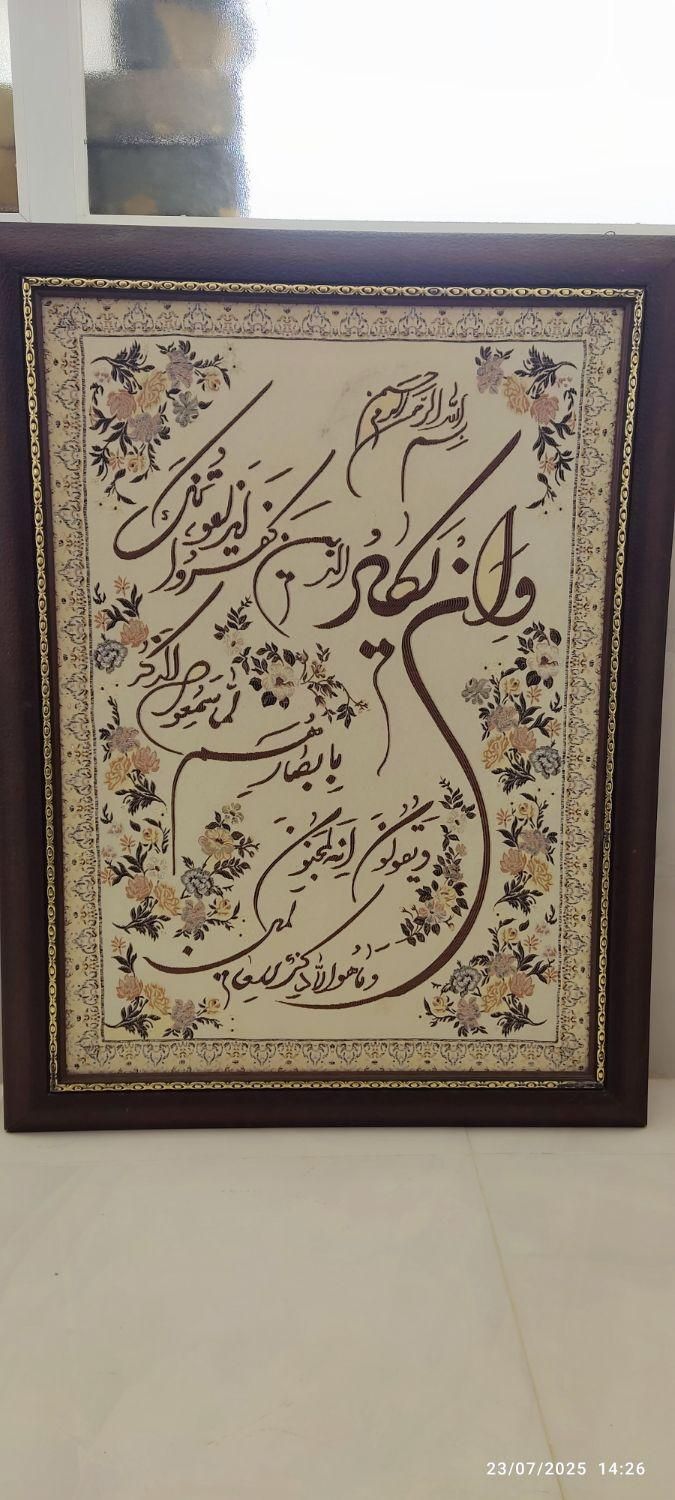 بسم الله الرحمن الرحيم
وَاِن يَكادُ الذين كفروا
ليزلقونك
بِابصارهم
لَمّا سَمِعوا الذّكرُ
وَ يَقولُونَ اِنّه لمجنون
وَ ما هُوَ اِلّا ذِكرٌ للعالمين
23/07/2025 14:26